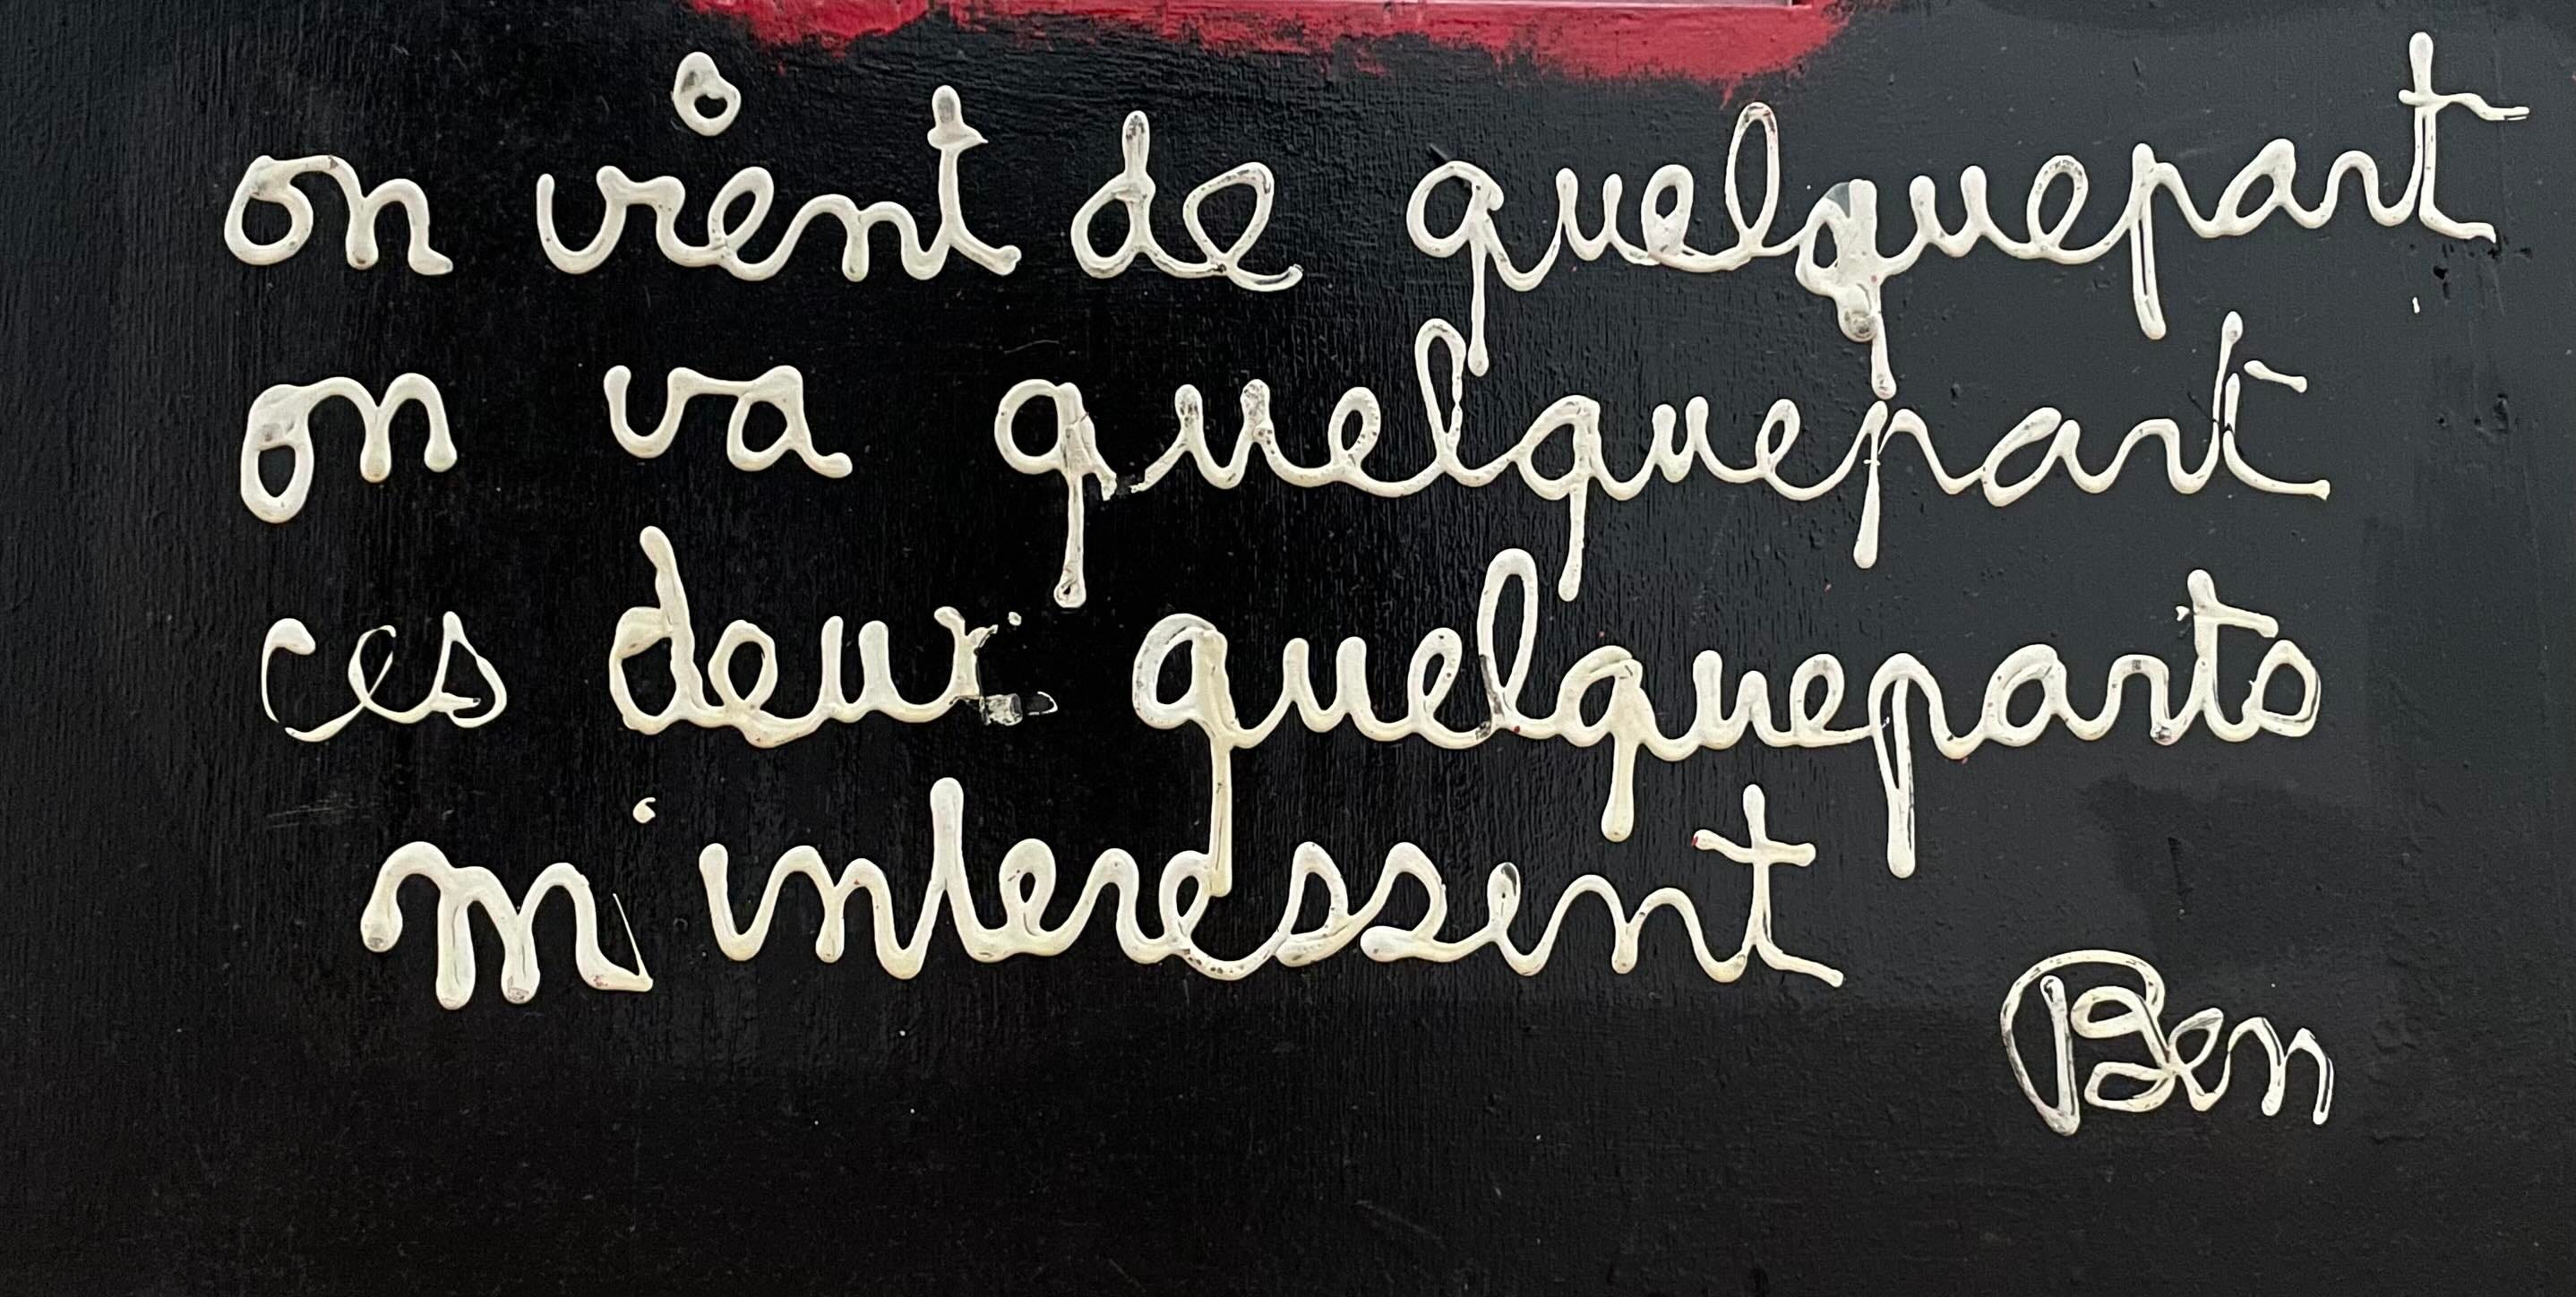 on vient de quelquepart
on va quelquepart
ces deux quelqueparts
m'interessent
Ben